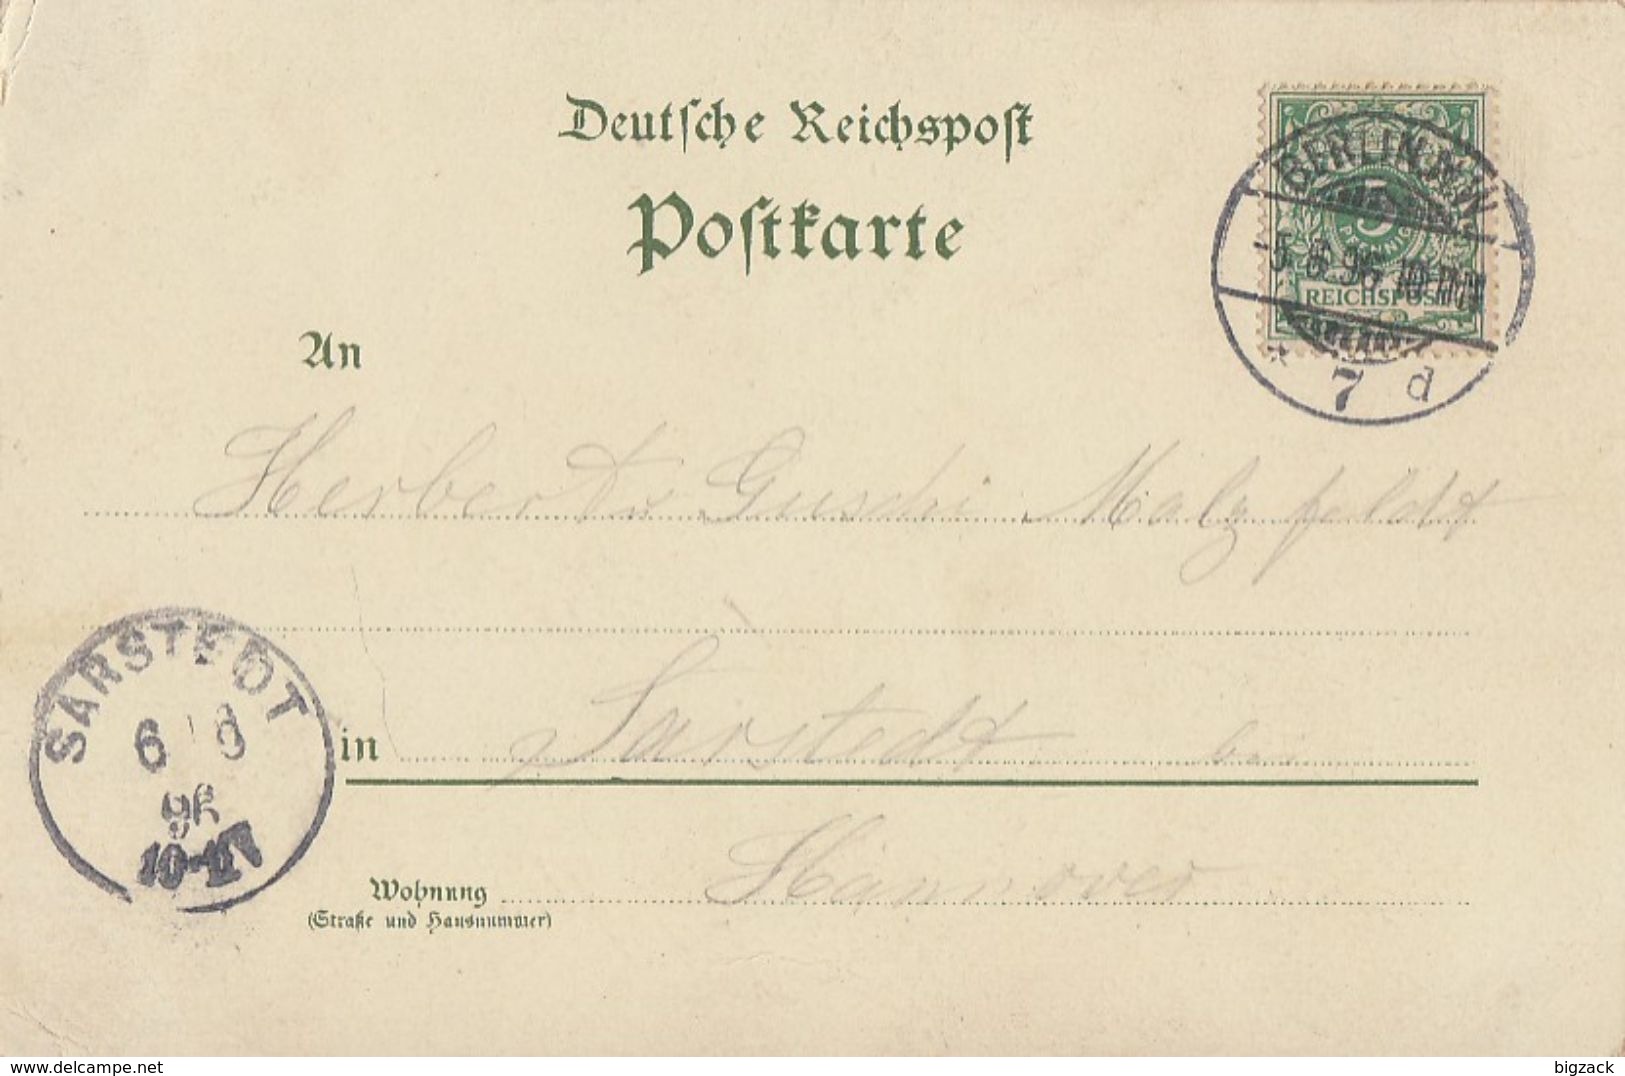 Deutsche Reichspost
Postkarte
BERLIN N.W.
5 PFENNIG
5.8.96. 10-11N
REICHSPOST
* 7 d
An
Herbert u Guschi Malzfeldt
SARSTEDT
6 8
96
10-11V
in Sarstedt bei
Wohnung Hannover
(Straße und Hausnummer)
www.delcampe.net
bigzack